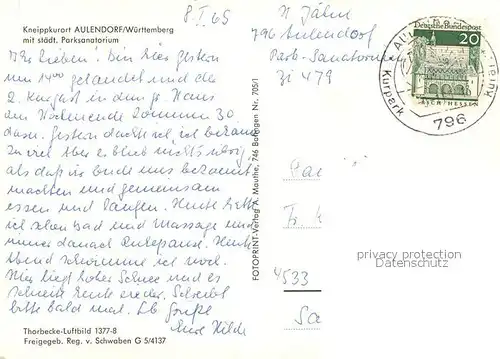 Kneippkurort AULENDORF/Württemberg
mit städt. Parksanatorium
8. I. 65
Jähn
796 Aulendorf
Park-Sanatorium
Zi 479
Ihr Lieben! Bin hier gestern
um 14⁰⁰ gelandet und die
2. Kurgast in dem Haus
am Wochenende kommen 30
dazu. Gestern dachte ich ich bekäme
zu viel Aber es blieb nichts übrig,
als daß
machten und gemeinsam
essen und laufen. Heute hatte
ich schon Bad und Massage und
immer danach Ruhepause. Heute
Abend schwimme ich noch.
Hier liegt hoher Schnee und es
schneit heute wieder. Schreibt
bitte bald mal. Lb Grüße
Eure Hilde
Thorbecke-Luftbild 1377-8
Freigegeb. Reg. v. Schwaben G 5/4137
FOTOPRINT-Verlag A. Mauthe, 746 Balingen Nr. 705/1
Deutsche Bundespost
20
LORSCH/HESSEN
Kurpark
796
Fr
4533
privacy protection
Datenschutz